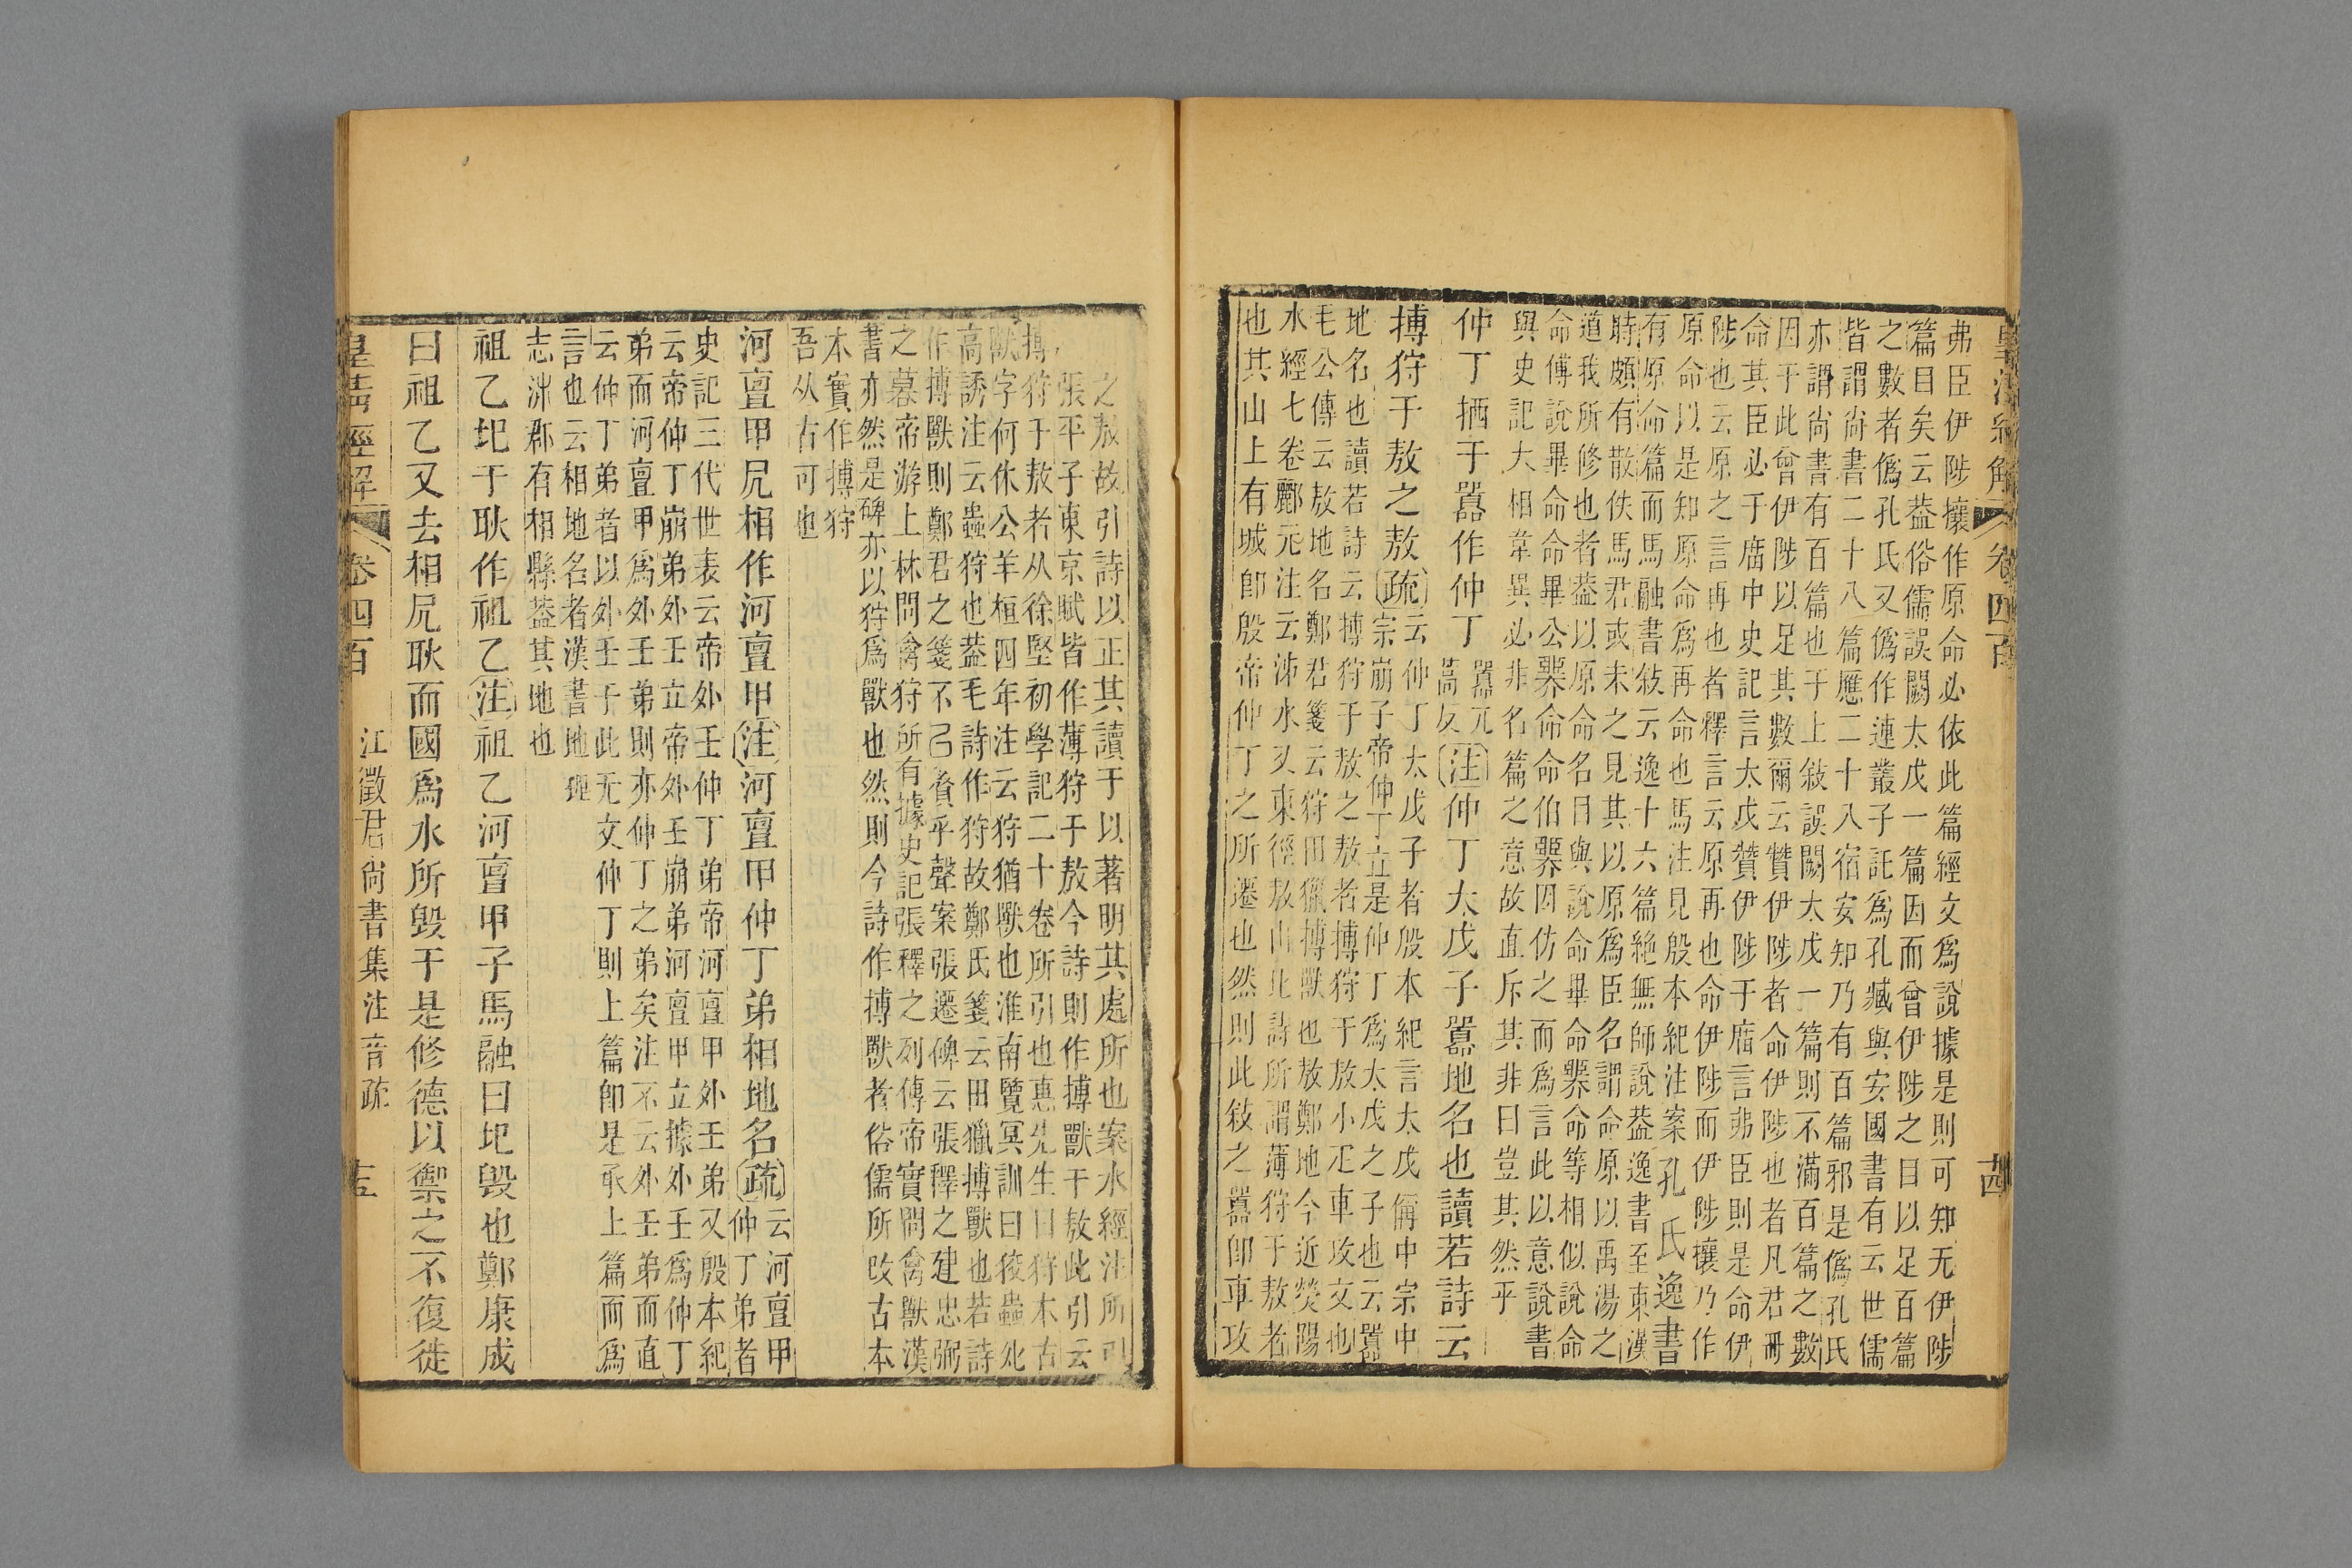 皇清經解 卷四百 十四
弗臣伊陟攘作原命必依此篇經文爲說據是則可知无伊陟
篇目矣云葢俗儒誤闕太戊一篇因而曾伊陟之目以足百篇
之數者僞孔氏又僞作連叢子託爲孔臧與安國書有云世儒
皆謂尙書二十八篇應二十八宿安知乃有百篇邪是僞孔氏
亦謂尙書有百篇也于上敍誤闕太戊一篇則不滿百篇之數
因于此曾伊陟以足其數爾云贊伊陟者命伊陟也者凡君冊
命其臣必于庿中史記言太戊贊伊陟于庿言弗臣則是命伊
陟也云原之言再也者釋言云原再也命伊陟而伊陟攘乃作
原命以是知原命爲再命也馬注見殷本紀注案孔氏逸書
有原命篇而馬融書敍云逸十六篇絶無師說葢逸書至東漢
時頗有散佚馬君或未之見其以原爲臣名謂命原以禹湯之
道我所修也者葢以原命名曰與說命畢命奰命等相似說命
命傅說畢命命畢公奰命命伯奰因仿之而爲言此以意說書
與史記大相韋異必非名篇之意故直斥其非曰豈其然乎
仲丁㢴于囂作仲丁囂元蒿反注仲丁太戊子囂地名也讀若詩云
搏狩于敖之敖疏云仲丁太戊子者殷本紀言太戊偁中宗中
宗崩子帝仲丁立是仲丁爲太戊之子也云囂
地名也讀若詩云搏狩于敖之敖者搏狩于敖小疋車攻文也
毛公傳云敖地名鄭君箋云狩田獵搏獸也敖鄭地今近熒陽
水經七卷酈元注云沛水又東徑敖山北詩所謂薄狩于敖者
也其山上有城卽殷帝仲丁之所遷也然則此敍之囂卽車攻
之敖故引詩以正其讀于以著明其處所也案水經注所引
張平子東京賦皆作薄狩于敖今詩則作搏獸于敖此引云
搏狩于敖者从徐堅初學記二十卷所引也惠先生曰狩本古
獸字何休公羊桓四年注云狩猶獸也淮南覽冥訓曰狡蟲死
高誘注云蟲狩也葢毛詩作狩故鄭氏箋云田獵搏獸也若詩
作搏獸則鄭君之箋不已贅乎聲案張遷碑云張釋之建忠弼
之謩帝游上林問禽狩所有據史記張釋之列傳帝實問禽獸漢
書亦然是碑亦以狩爲獸也然則今詩作搏獸者俗儒所改古本
本實作搏狩
吾从古可也
河亶甲凥相作河亶甲注河亶甲仲丁弟相地名疏云河亶甲
仲丁弟者
史記三代世表云帝外壬仲丁弟帝河亶甲外壬弟又殷本紀
云帝仲丁崩弟外壬立帝外壬崩弟河亶甲立據外壬爲仲丁
弟而河亶甲爲外壬弟則亦仲丁之弟矣注不云外壬弟而直
云仲丁弟者以外壬于此无文仲丁則上篇卽是承上篇而爲
言也云相地名者漢書地理
志沛郡有相縣葢其地也
祖乙圯于耿作祖乙注祖乙河亶甲子馬融曰圯毀也鄭康成
曰祖乙又去相凥耿而國爲水所毀于是修德以禦之不復徙
皇淸經解 卷四百 江徵君尙書集注音疏 十五